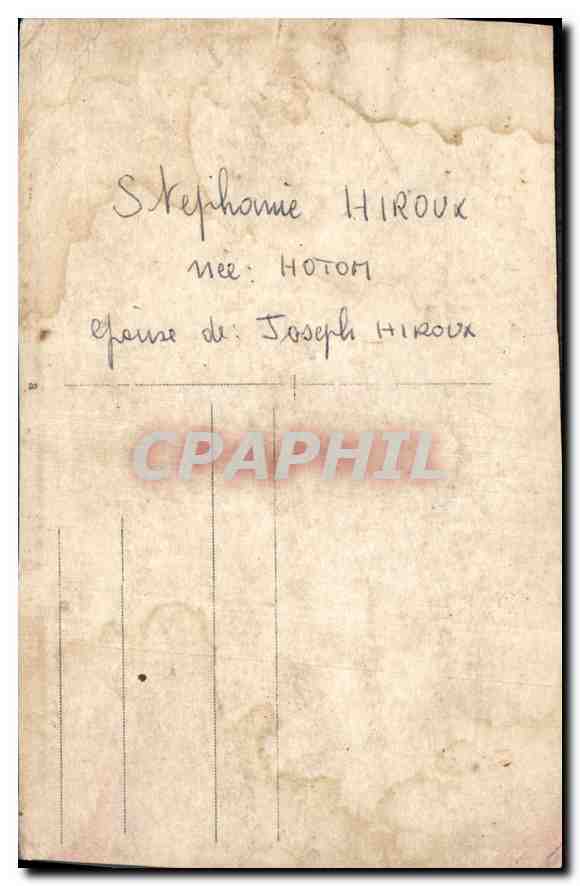 Stephanie HIROUX
née: HOTOM
épouse de: Joseph HIROUX
CPAPHIL